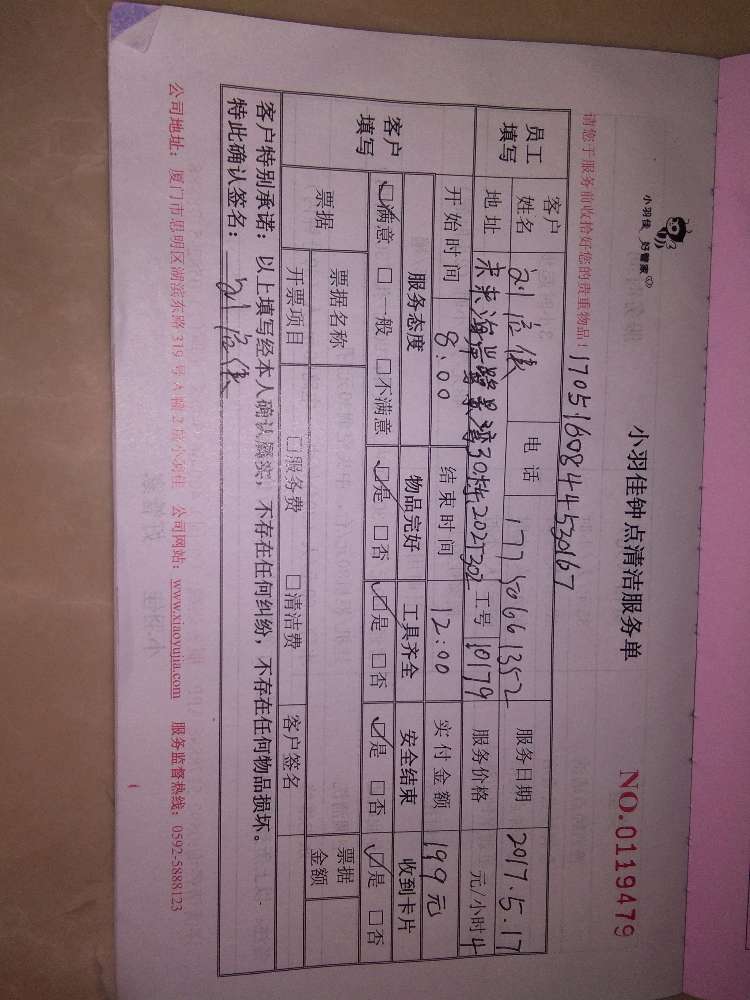 小羽佳 好管家
小羽佳钟点清洁服务单
NO.0119479
请您于服务前收拾好您的贵重物品!
1705160844530167
员工填写
客户姓名 电话 17750661352 服务日期 2017.5.17
地址 未来海岸 30栋 202 工号 10179 服务价格 元/小时 4
开始时间 8:00 结束时间 12:00 实付金额 199元
客户填写
服务态度 物品完好 工具齐全 安全结束 收到卡片
☑满意 □一般 □不满意 ☑是 □否 ☑是 □否 ☑是 □否 ☑是 □否
票据 票据名称 票据金额
开票项目 □服务费 □清洁费 客户签名
客户特别承诺:以上填写经本人确认属实,不存在任何纠纷,不存在任何物品损坏。
特此确认签名:
公司地址:厦门市思明区湖滨东路319号A幢2层小羽佳 公司网站:www.xiaoyujia.com 服务监督热线:0592-5888123